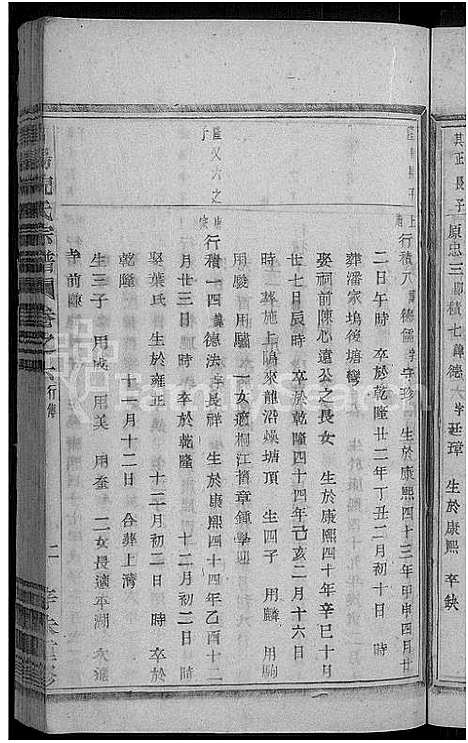 其正長子
原忠三 積七 諱德 字延璋 生於康熙 卒缺
長子
行積八 諱德儒 字珍 生於康熙四十三年甲申四月廿
二日午時 卒於乾隆廿二年丁丑二月初十日 時
葬潘家塢後塘灣
娶祠前陳心遠公之長女 生於康熙四十年辛巳十月
廿七日辰時 卒於乾隆四十四年己亥二月十六日
時 葬施上隝來龍沿燥塘頂 生四子 用麟 用駒
用駿 用驌 一女適桐江舊章鍾學
又六之
子
行積一四 諱德法 字長祥 生於康熙四十四年乙酉十二
月廿三日 時 卒於乾隆 十二月初二日 時
娶葉氏 生於雍正 十二月初二日 時 卒於
乾隆 十一月十二日 合葬上灣
生三子 用成 用美 用泰 二女長適平湖 次適
寺前陳
氏宗譜 卷之六 行傳 二